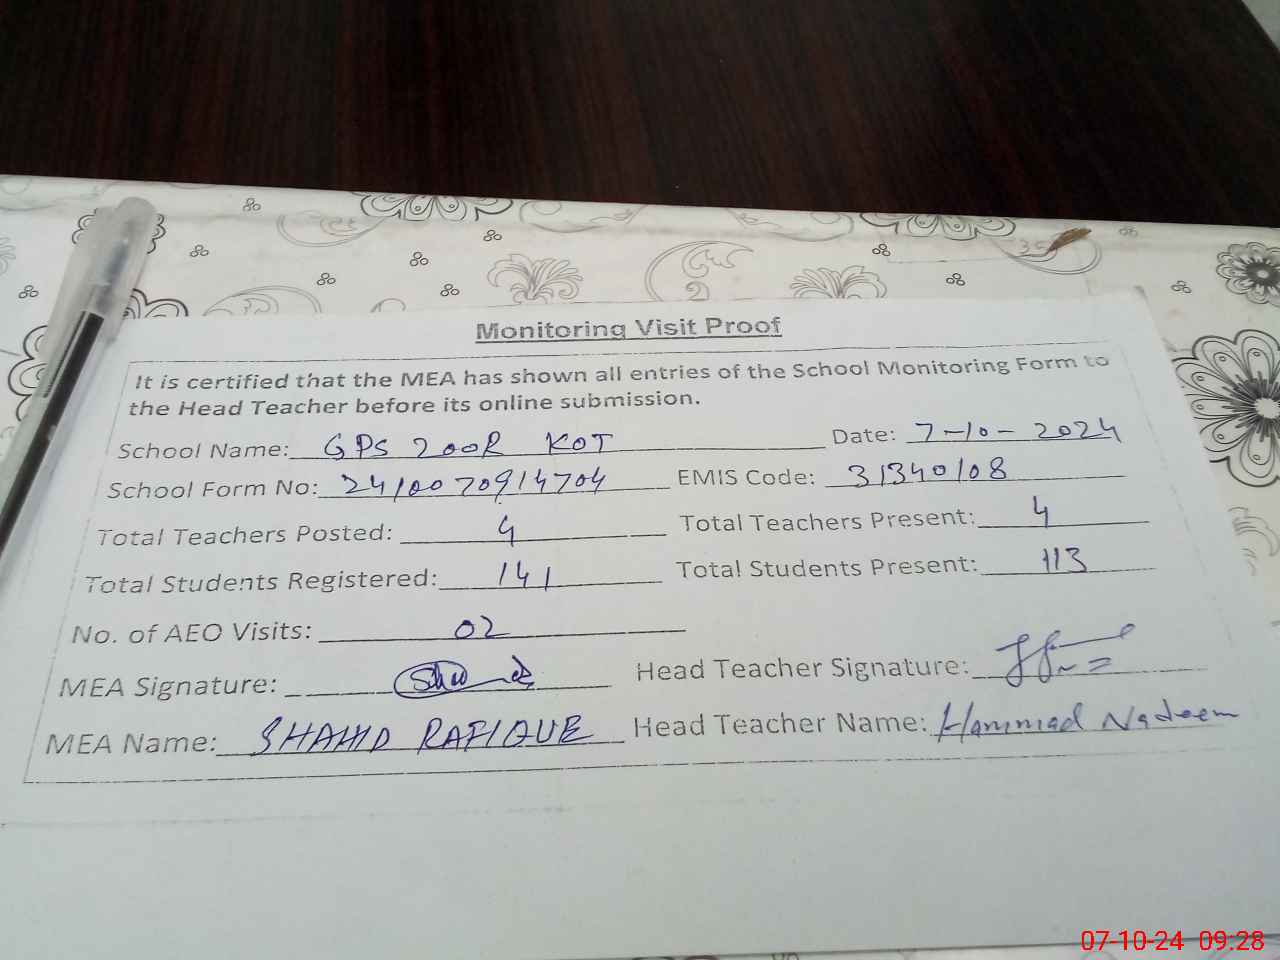 Monitoring Visit Proof
It is certified that the MEA has shown all entries of the School Monitoring Form to
the Head Teacher before its online submission.
School Name: GPS 200R KOT Date: 7-10-2024
School Form No: 2410070914704 EMIS Code: 31340108
Total Teachers Posted: 4 Total Teachers Present: 4
Total Students Registered: 141 Total Students Present: 113
No. of AEO Visits: 02
MEA Signature: Head Teacher Signature:
MEA Name: SHAHID RAFIQUE Head Teacher Name: Hammad Nadeem
07-10-24 09:28